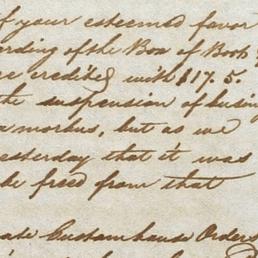 of your esteemed favor
ording of the Box of Books
are credited with $17.5.
the suspension of busin
a morbus, but as we
yesterday that it was
be freed from that
ade Customhouse Orders